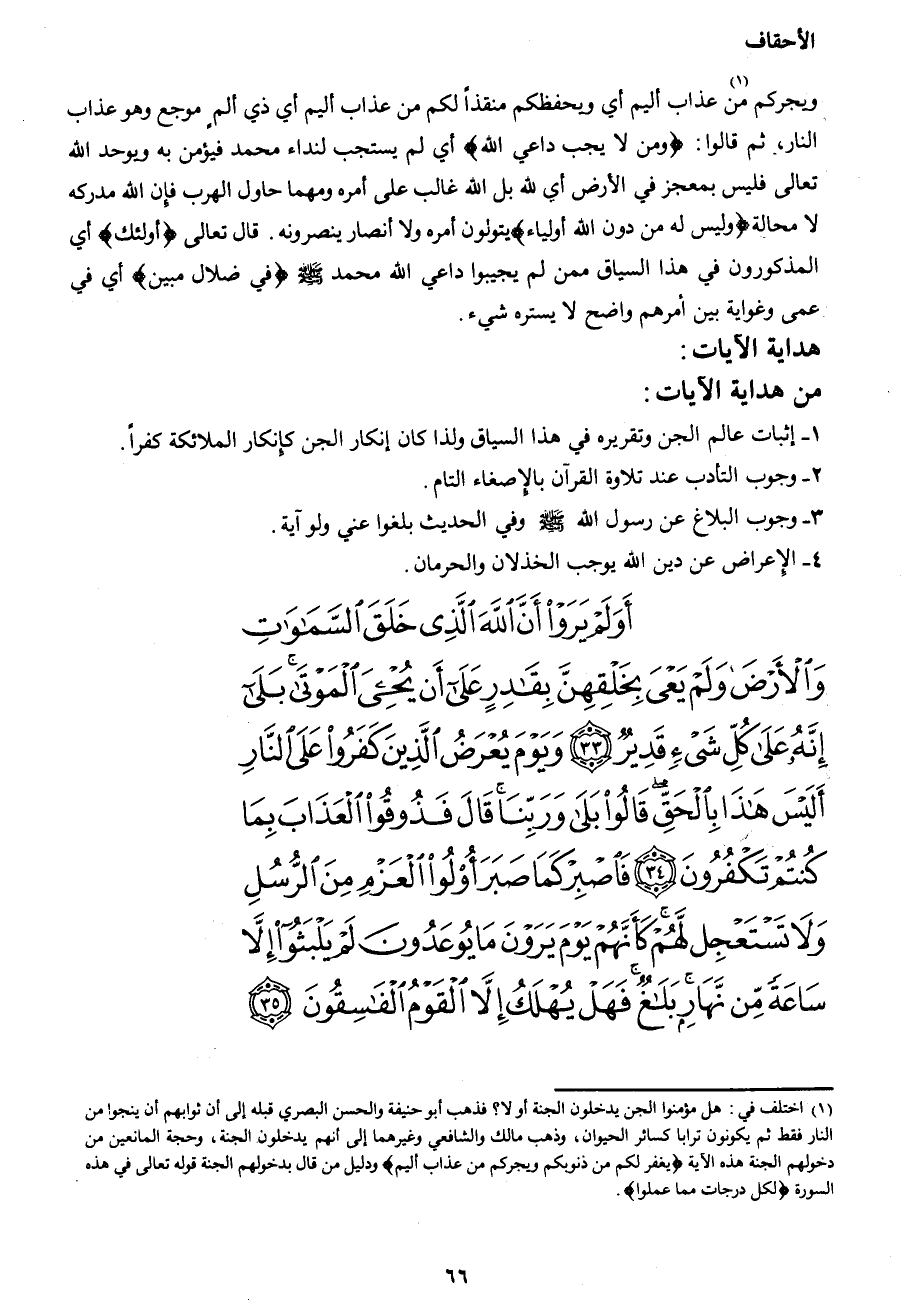 الأحقاف
ويجركم من(١) عذاب أليم أي ويحفظكم منقذاً لكم من عذاب أليم أي ذي ألم موجع وهو عذاب
النار، ثم قالوا: ﴿ومن لا يجب داعي الله﴾ أي لم يستجب لنداء محمد فيؤمن به ويوحد الله
تعالى فليس بمعجز في الأرض أي لله بل الله غالب على أمره ومهما حاول الهرب فإن الله مدركه
لا محالة ﴿وليس له من دون الله أولياء﴾ يتولون أمره ولا أنصار ينصرونه. قال تعالى ﴿أولئك﴾ أي
المذكورون في هذا السياق ممن لم يجيبوا داعي الله محمد ﷺ ﴿في ضلال مبين﴾ أي في
عمى وغواية بين أمرهم واضح لا يستره شيء.
هداية الآيات:
من هداية الآيات:
١- إثبات عالم الجن وتقريره في هذا السياق ولذا كان إنكار الجن كإنكار الملائكة كفراً.
٢- وجوب التأدب عند تلاوة القرآن بالإصغاء التام.
٣- وجوب البلاغ عن رسول الله ﷺ وفي الحديث بلغوا عني ولو آية.
٤- الإعراض عن دين الله يوجب الخذلان والحرمان.
أَوَلَمْ يَرَوْا۟ أَنَّ ٱللَّهَ ٱلَّذِى خَلَقَ ٱلسَّمَٰوَٰتِ
وَٱلْأَرْضَ وَلَمْ يَعْىَ بِخَلْقِهِنَّ بِقَٰدِرٍ عَلَىٰٓ أَن يُحْـِۧىَ ٱلْمَوْتَىٰ ۚ بَلَىٰٓ
إِنَّهُۥ عَلَىٰ كُلِّ شَىْءٍ قَدِيرٌ ٣٣ وَيَوْمَ يُعْرَضُ ٱلَّذِينَ كَفَرُوا۟ عَلَى ٱلنَّارِ
أَلَيْسَ هَٰذَا بِٱلْحَقِّ ۖ قَالُوا۟ بَلَىٰ وَرَبِّنَا ۚ قَالَ فَذُوقُوا۟ ٱلْعَذَابَ بِمَا
كُنتُمْ تَكْفُرُونَ ٣٤ فَٱصْبِرْ كَمَا صَبَرَ أُو۟لُوا۟ ٱلْعَزْمِ مِنَ ٱلرُّسُلِ
وَلَا تَسْتَعْجِل لَّهُمْ ۚ كَأَنَّهُمْ يَوْمَ يَرَوْنَ مَا يُوعَدُونَ لَمْ يَلْبَثُوٓا۟ إِلَّا
سَاعَةً مِّن نَّهَارٍۭ ۚ بَلَٰغٌ ۚ فَهَلْ يُهْلَكُ إِلَّا ٱلْقَوْمُ ٱلْفَٰسِقُونَ ٣٥
(١) اختلف في: هل مؤمنوا الجن يدخلون الجنة أو لا؟ فذهب أبو حنيفة والحسن البصري قبله إلى أن ثوابهم أن ينجوا من
النار فقط ثم يكونون ترابا كسائر الحيوان، وذهب مالك والشافعي وغيرهما إلى أنهم يدخلون الجنة، وحجة المانعين من
دخولهم الجنة هذه الآية ﴿يغفر لكم من ذنوبكم ويجركم من عذاب أليم﴾ ودليل من قال بدخولهم الجنة قوله تعالى في هذه
السورة ﴿لكل درجات مما عملوا﴾.
٦٦